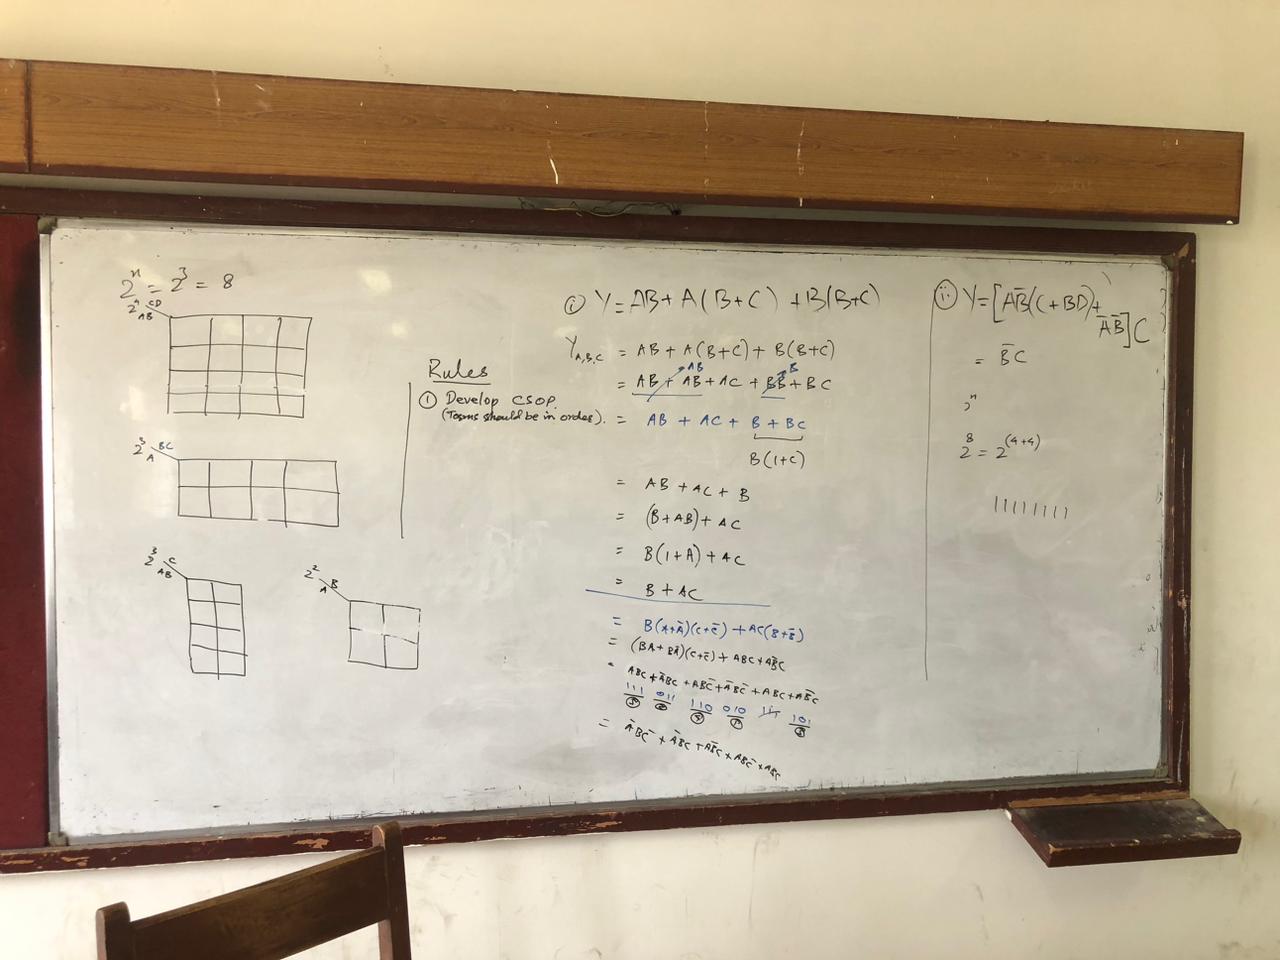 2ⁿ = 2³ = 8
2⁴ CD
AB
2³ BC
A
2³ C
AB
2² B
A
Rules
① Develop CSOP.
(Terms should be in order).
ⓘ Y = AB + A(B+C) + B(B+C)
Y A,B,C = AB + A(B+C) + B(B+C)
AB B
= AB + AB + AC + BB + BC
= AB + AC + B + BC
B(1+C)
= AB + AC + B
= (B+AB) + AC
= B(1+A) + AC
= B + AC
= B(A+A̅)(C+C̅) + AC(B+B̅)
= (BA+BA̅)(C+C̅) + ABC + AB̅C
= ABC + A̅BC + ABC̅ + A̅BC̅ + ABC + AB̅C
111 011 110 010 111 101
= A̅BC̅ + A̅BC + AB̅C + ABC̅ + ABC
ⅱ Y = [AB̅(C+BD) + A̅B̅]C
= B̅C
2⁸ = 2⁽⁴⁺⁴⁾
11111111